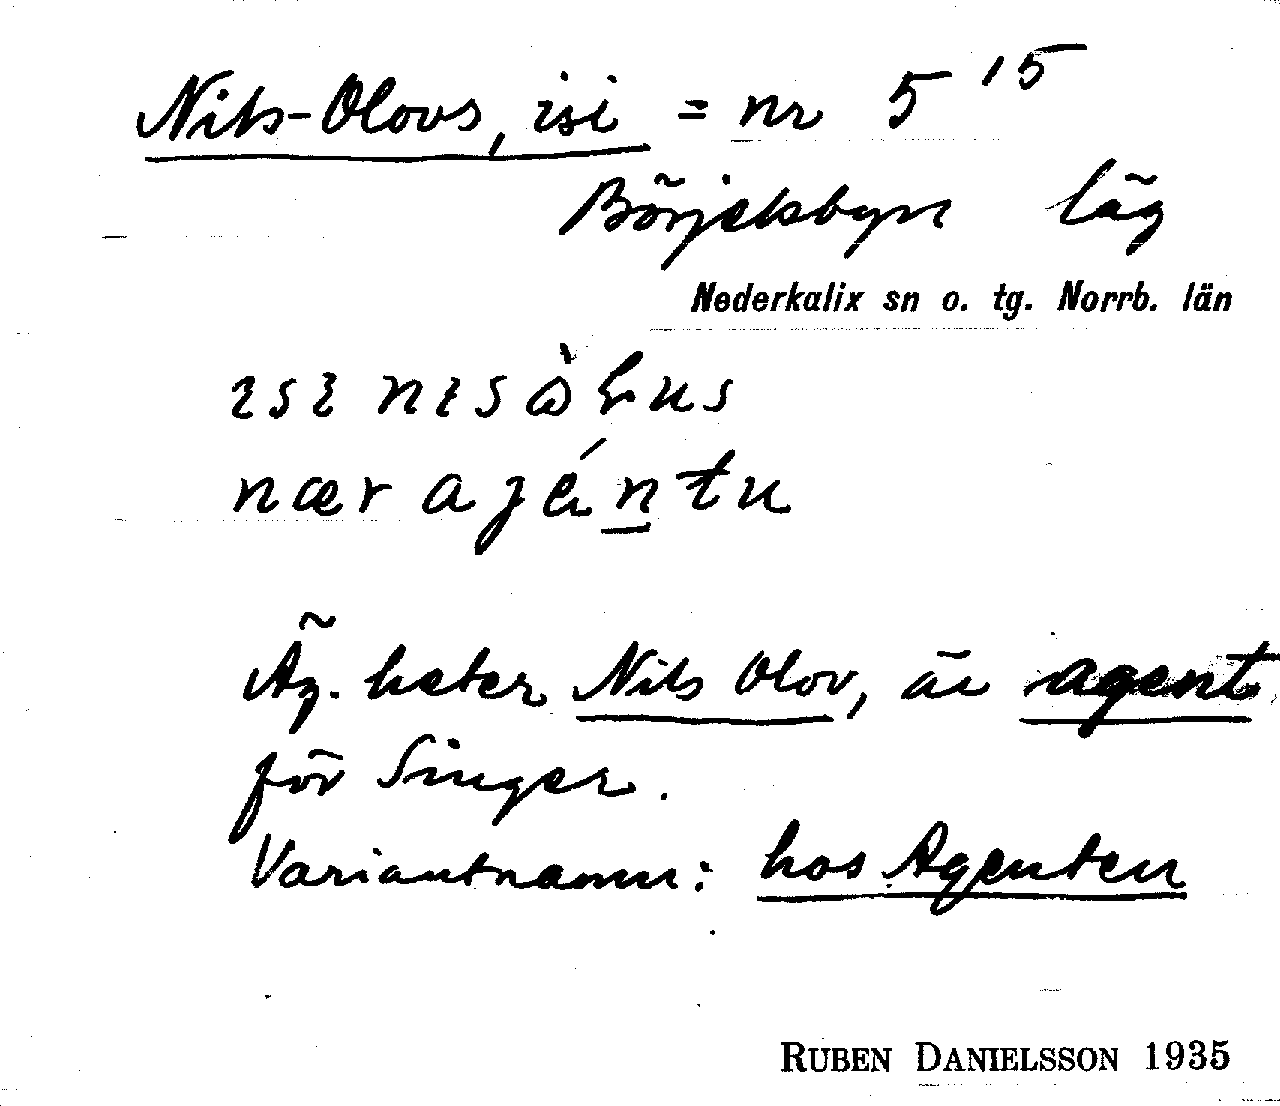 Nils-Olovs, isi = nr 5 15
Börjelsbyn läg
Nederkalix sn o. tg. Norrb. län
nær
Äg. heter Nils Olov, är agent
för Singer.
Variantnamn: hos Agenten
RUBEN DANIELSSON 1935